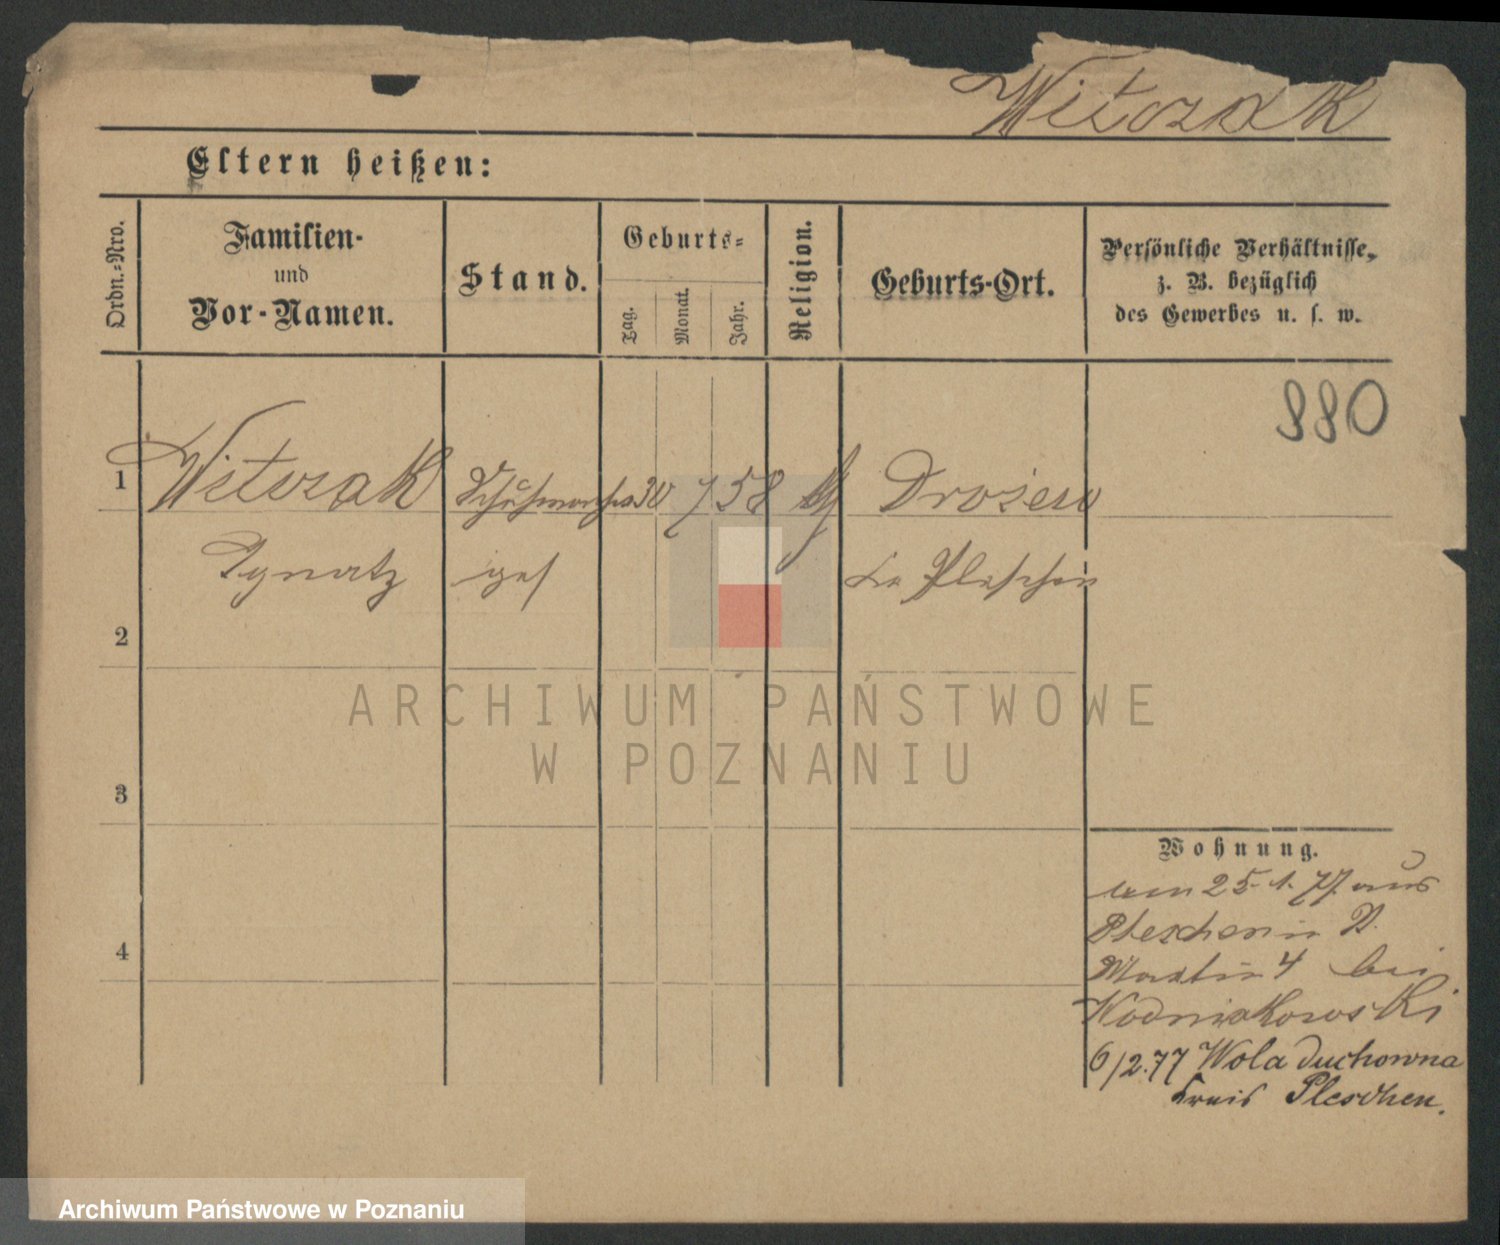 Witczak
Eltern heißen:
Ordn.-Nro.
Familien-
und
Vor-Namen.
Stand.
Geburts-
Tag.
Monat.
Jahr.
Religion.
Geburts-Ort.
Persönliche Verhältnisse,
z. B. bezüglich
des Gewerbes u. s. w.
880
1
Witczak
30
7
58
Drożew
Ignatz
ges
Kr Pleschen
2
3
4
Wohnung.
am 25.1.77 aus
Pleschen in St.
Martin 4 bei
Wodniakowski
6/2.77 Wola duchowna
Kreis Pleschen.
ARCHIWUM PAŃSTWOWE
W POZNANIU
Archiwum Państwowe w Poznaniu